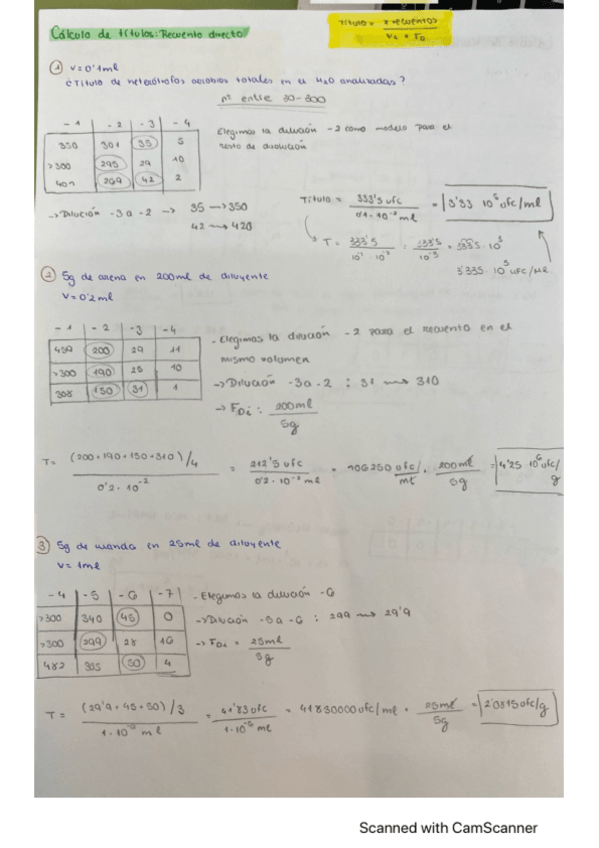 Cálculo de títulos: Recuento directo
Título = x recuentos / Vi · FD
① V = 0'1ml
¿Título de heterótrofos aerobios totales en el H2O analizadas?
nº entre 30-300
-1 | -2 | -3 | -4
350 | 301 | 35 | 5
>300 | 295 | 29 | 10
401 | 269 | 42 | 2
Elegimos la dilución -2 como modelo para el
resto de disolución
→ Dilución -3 a -2 → 35 → 350
42 → 420
Título = 333'5 ufc / 0'1 · 10^-2 ml = 3'33 10^5 ufc/ml
T = 333'5 / 10^-1 · 10^-2 = 333'5 / 10^-3 = 333'5 · 10^3
3'335 · 10^5 ufc/ml
② 5g de arena en 200ml de diluyente
V = 0'2ml
-1 | -2 | -3 | -4
| 200 | 29 | 11
>300 | 190 | 25 | 10
308 | 150 | 31 | 1
- Elegimos la dilución -2 para el recuento en el
mismo volumen
→ Dilución -3 a -2 : 31 → 310
→ FDi : 200ml / 5g
T = (200+190+150+310)/4 / 0'2 · 10^-2 = 212'5 ufc / 0'2 · 10^-2 ml = 106250 ufc/ml · 200ml / 5g = 4'25 10^6 ufc/g
③ 5g de en 25ml de diluyente
V = 1ml
-4 | -5 | -6 | -7
>300 | 340 | 45 | 0
>300 | 299 | 28 | 16
482 | 305 | 50 | 4
- Elegimos la dilución -6
→ Dilución -5 a -6 : 299 → 29'9
→ FDi = 25ml / 5g
T = (29'9+45+50)/3 / 1 · 10^-6 ml = 41'83 ufc / 1 · 10^-6 ml = 41830000 ufc/ml · 25ml / 5g = ufc/g
Scanned with CamScanner